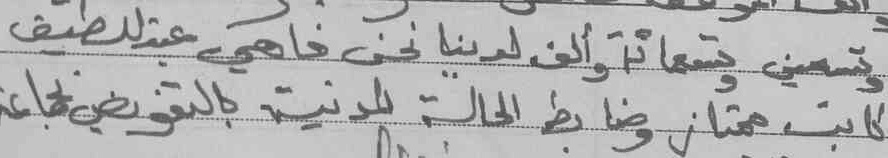 وتسعين وتسعمائة وألف لدينا نحن فاهمي عبد اللطيف
كاتب ممتاز وضابط الحالة المدنية بالتفويض لجماعة